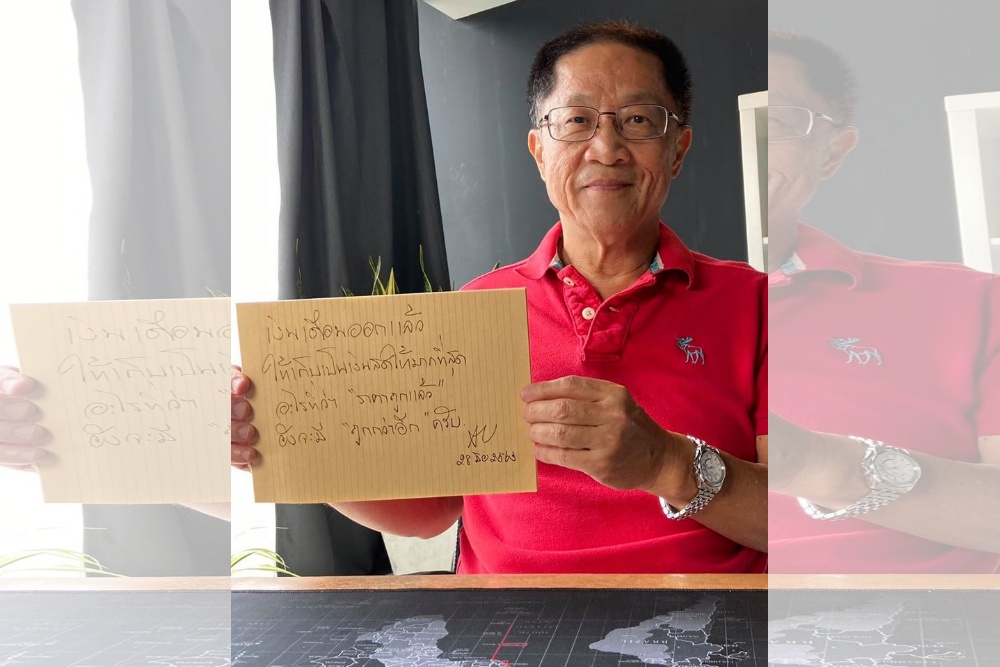 เงินเดือนออกแล้ว
ให้เก็บเป็นเงินสดให้มากที่สุด
อะไรที่ว่า "ราคาถูกแล้ว"
ยังจะมี "ถูกกว่าอีก" ครับ
28 มิย 2563